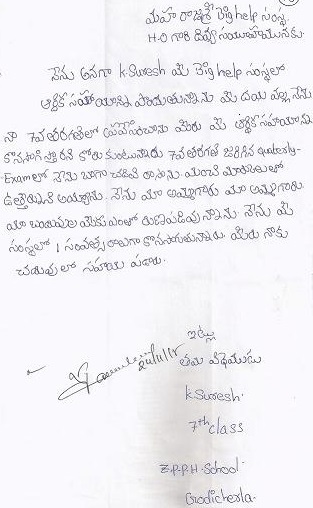 మహా రాజశ్రీ Big help సంస్థ
H.O గారి దివ్య సముఖమునకు
నేను అనగా K.Suresh మీ Big help సంస్థలో
ఆర్థిక సహాయాన్ని పొందుతున్నాను మీ దయ వల్ల నేను
నా 7వ తరగతిలో మీరు మీ ఆర్థిక సహాయాన్ని
కొనసాగిస్తారని కోరుకుంటున్నాను 7వ తరగతి జరిగిన Quaterly-
Exam లో నేను బాగా చదివి రాసాను. మంచి మార్కులతో
ఉత్తీర్ణుడిని అయ్యాను. నేను మా అమ్మగారు మా అమ్మగారు
మా బంధువులు మీకు ఎంతో రుణపడివున్నాను నేను మీ
సంస్థలో 1 సంవత్సరాలుగా కొనసాగుతున్నాను. మీరు నాకు
చదువులో సహాయ పడారు.
ఇట్లు
తమ విధేయుడు
K.Suresh.
7th class
Z.P.P.H.School
Grodicherla.